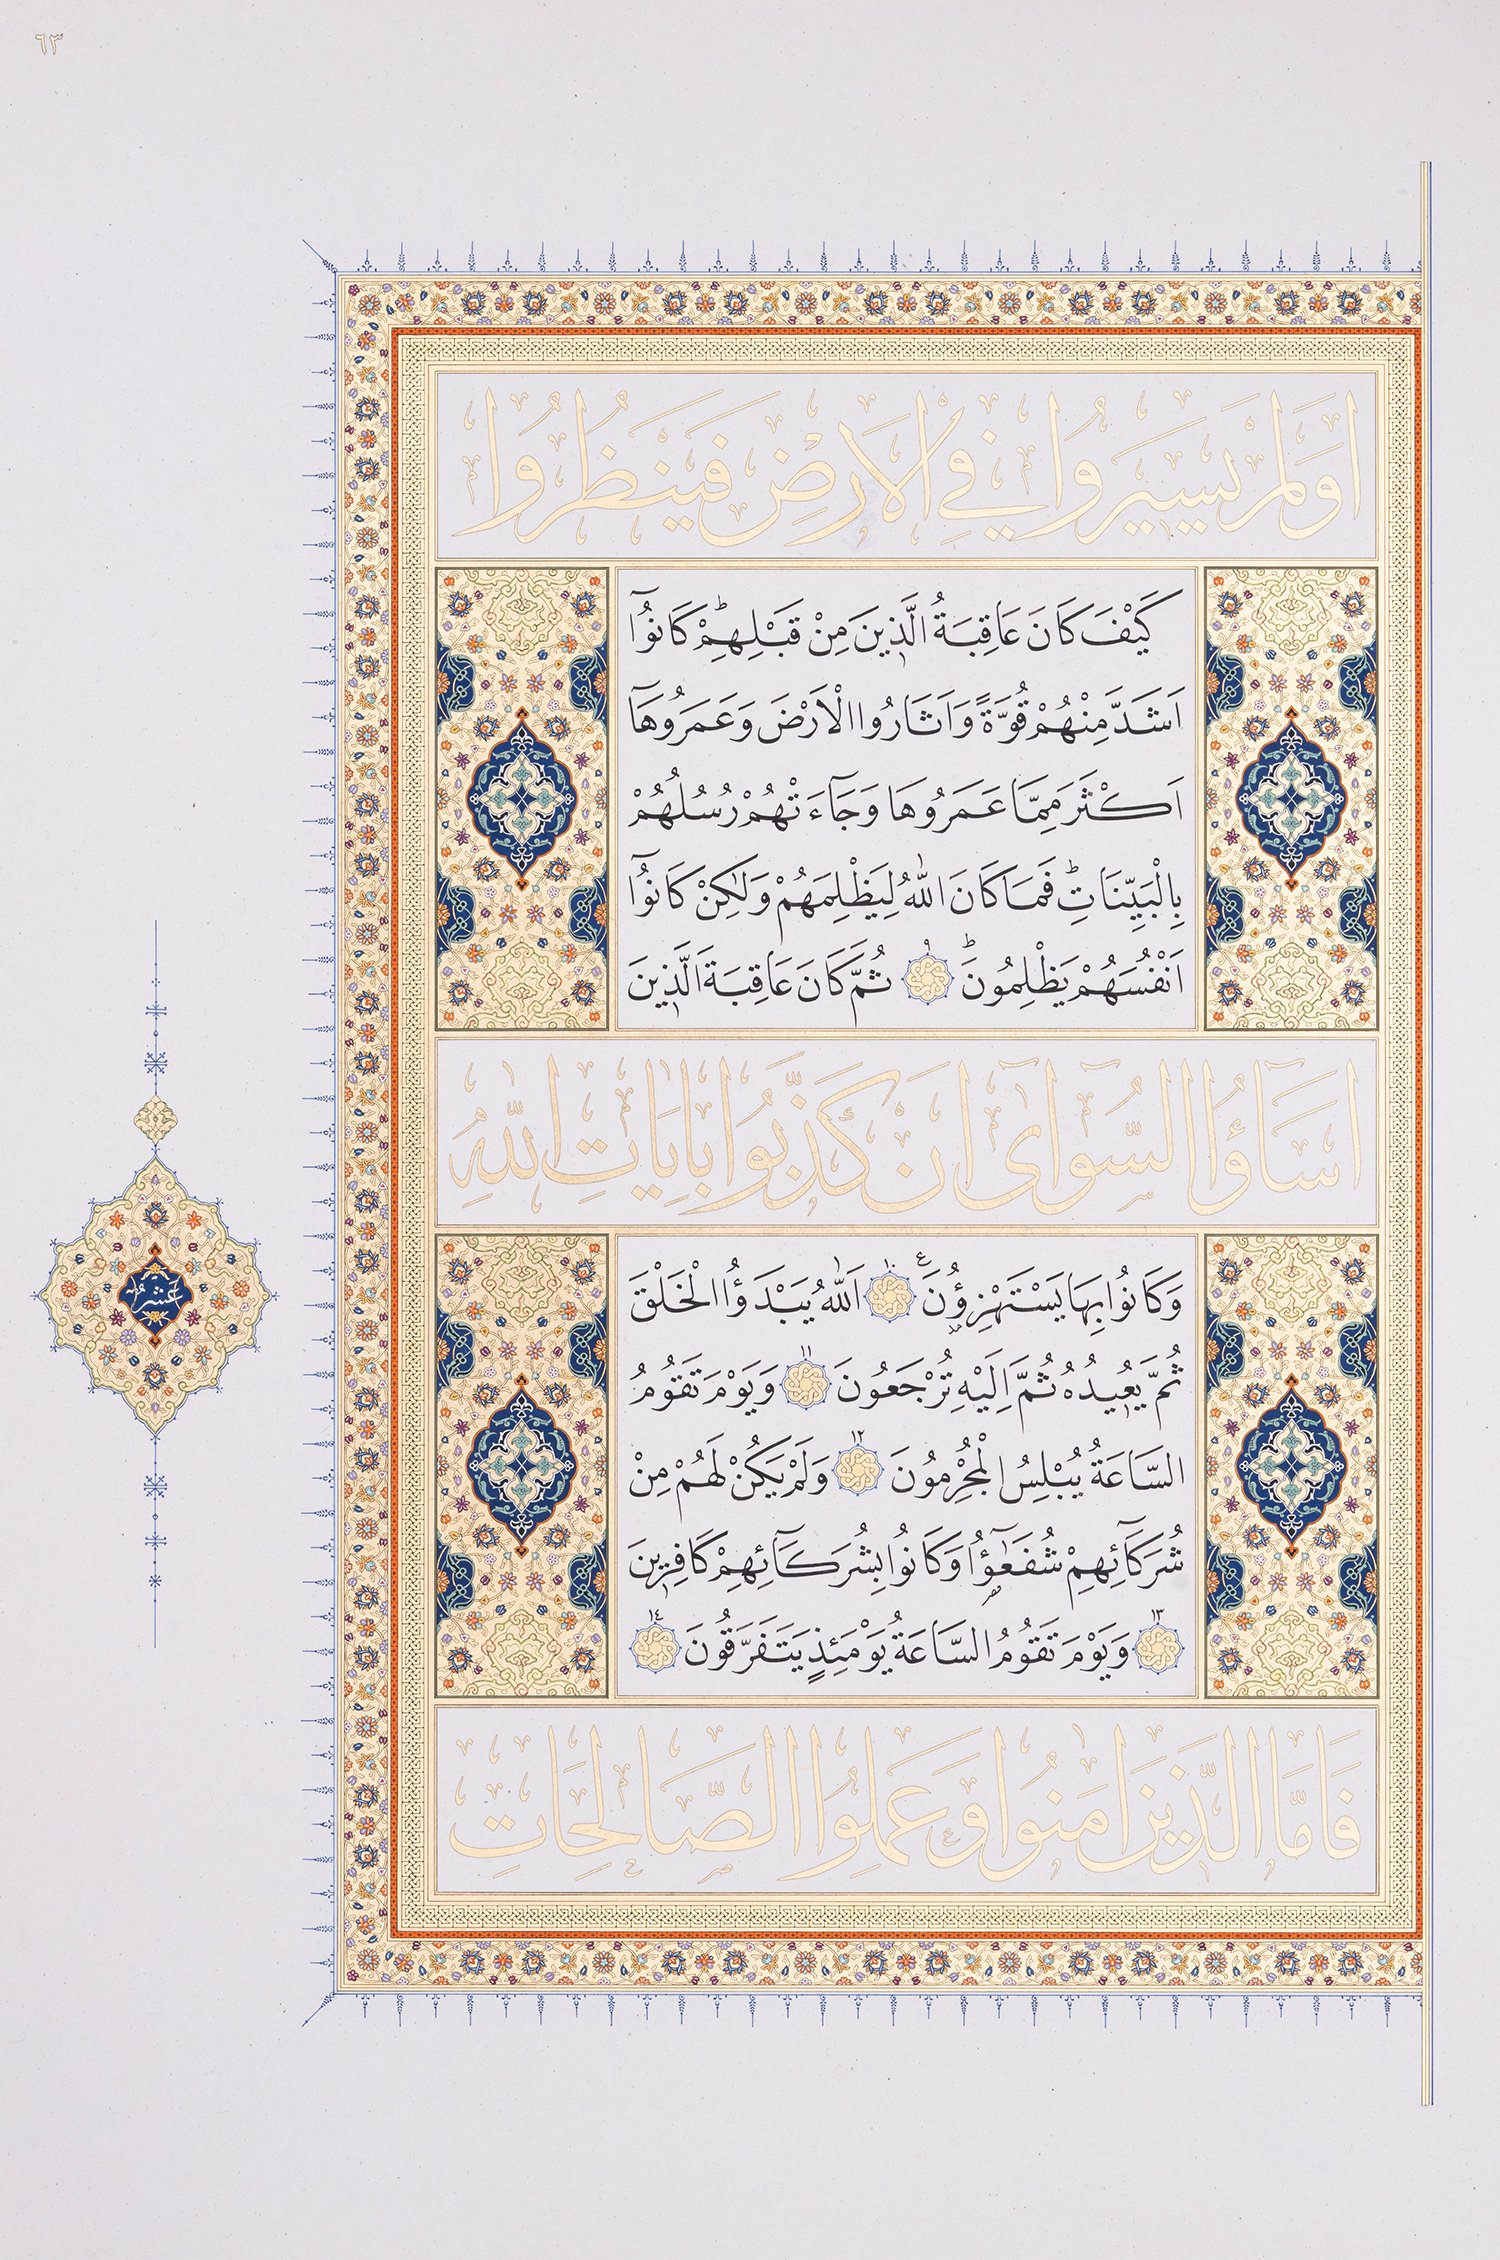 ٦٣
اَوَلَمْ يَسِيرُوا فِي الْاَرْضِ فَيَنْظُرُوا
كَيْفَ كَانَ عَاقِبَةُ الَّذِينَ مِنْ قَبْلِهِمْۜ كَانُٓوا
اَشَدَّ مِنْهُمْ قُوَّةً وَاَثَارُوا الْاَرْضَ وَعَمَرُوهَٓا
اَكْثَرَ مِمَّا عَمَرُوهَا وَجَٓاءَتْهُمْ رُسُلُهُمْ
بِالْبَيِّنَاتِۜ فَمَا كَانَ اللّٰهُ لِيَظْلِمَهُمْ وَلٰكِنْ كَانُٓوا
اَنْفُسَهُمْ يَظْلِمُونَۜ ٩ ثُمَّ كَانَ عَاقِبَةَ الَّذِينَ
اَسَٓاؤُا السُّٓوآٰى اَنْ كَذَّبُوا بِاٰيَاتِ اللّٰهِ
وَكَانُوا بِهَا يَسْتَهْزِؤُ۫نَ ع ١٠ اَللّٰهُ يَبْدَؤُا الْخَلْقَ
ثُمَّ يُعِيدُهُ ثُمَّ اِلَيْهِ تُرْجَعُونَ ١١ وَيَوْمَ تَقُومُ
السَّاعَةُ يُبْلِسُ الْمُجْرِمُونَ ١٢ وَلَمْ يَكُنْ لَهُمْ مِنْ
شُرَكَٓائِهِمْ شُفَعٰٓؤُ۬ا وَكَانُوا بِشُرَكَٓائِهِمْ كَافِرِينَ
١٣ وَيَوْمَ تَقُومُ السَّاعَةُ يَوْمَئِذٍ يَتَفَرَّقُونَ ١٤
فَاَمَّا الَّذِينَ اٰمَنُوا وَعَمِلُوا الصَّالِحَاتِ
عَشْرٌ